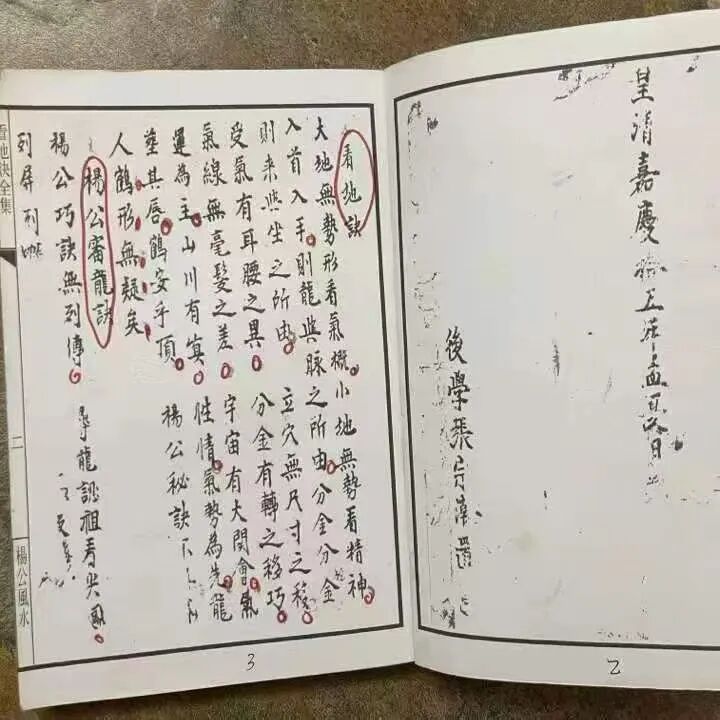 皇清嘉慶拾五年孟
日
後學張
2
看地訣
大地無勢形看氣概小地無勢看精神
入首入手則龍與脉之所由分金分金
則来與坐之所由 立穴無尺寸之移
受氣有耳腰之異 分金有轉之移巧
氣線無毫髮之差 宇宙有大関會氣
運為主山川有真 性情氣勢為先龍
塟其唇鶴安乎頂 楊公秘訣
人鶴形無疑矣
楊公審龍訣
楊公巧訣無列傳 尋龍認祖看尖圓
列屏列
看地訣全集
二
楊公風水
3